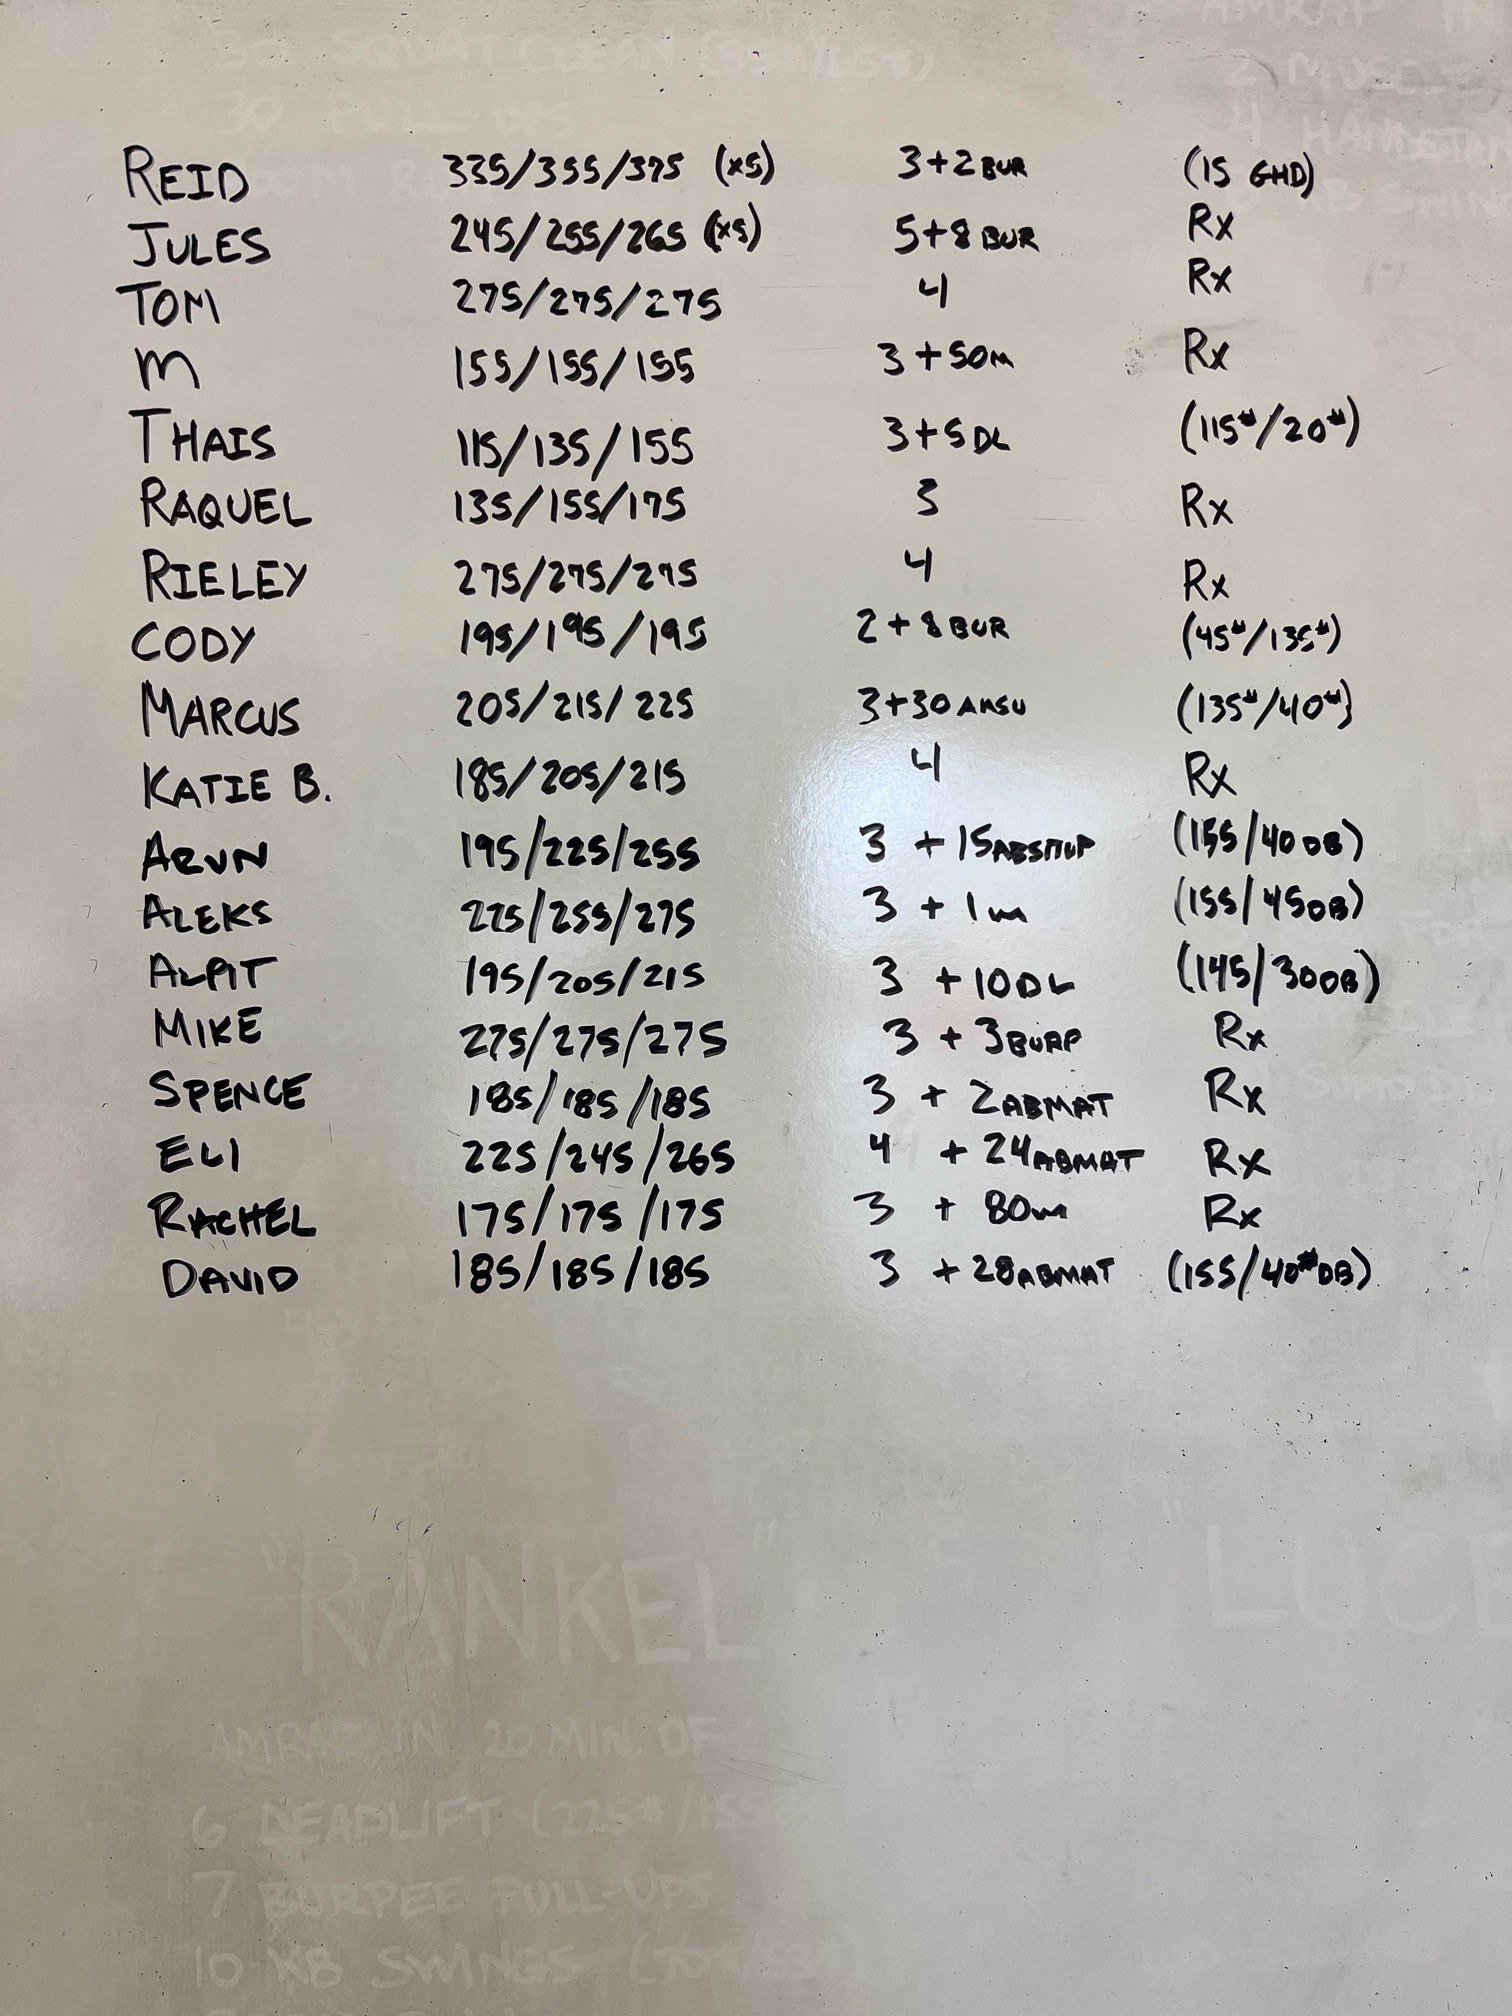 30 SQUAT CLEAN
30 PULL-UPS
AMRAP IN
2 MUSC
4 HANDSTAN
REID 335/355/375 (x5) 3+2 BUR (15 GHD)
JULES 245/255/265 (x5) 5+8 BUR Rx
TOM 275/275/275 4 Rx
M 155/155/155 3+50M Rx
THAIS 115/135/155 3+5 DL (115#/20#)
RAQUEL 135/155/175 3 Rx
RIELEY 275/275/275 4 Rx
CODY 195/195/195 2+8 BUR (45#/135#)
MARCUS 205/215/225 3+30 AMSU (135#/40#)
KATIE B. 185/205/215 4 Rx
ARUN 195/225/255 3 + 15 ABSITUP (155/40 DB)
ALEKS 225/255/275 3 + 1m (155/45DB)
ALPIT 195/205/215 3 + 10 DL (145/30DB)
MIKE 275/275/275 3 + 3 BURP Rx
SPENCE 185/185/185 3 + 2 ABMAT Rx
ELI 225/245/265 4 + 24 ABMAT Rx
RACHEL 175/175/175 3 + 80m Rx
DAVID 185/185/185 3 + 28 ABMAT (155/40#DB)
"RANKEL" "LUCE
AMRAP IN 20 MIN. OF
6 DEADLIFT (225#/155
7 BURPEE PULL-UPS
10 KB SWINGS (70#/53